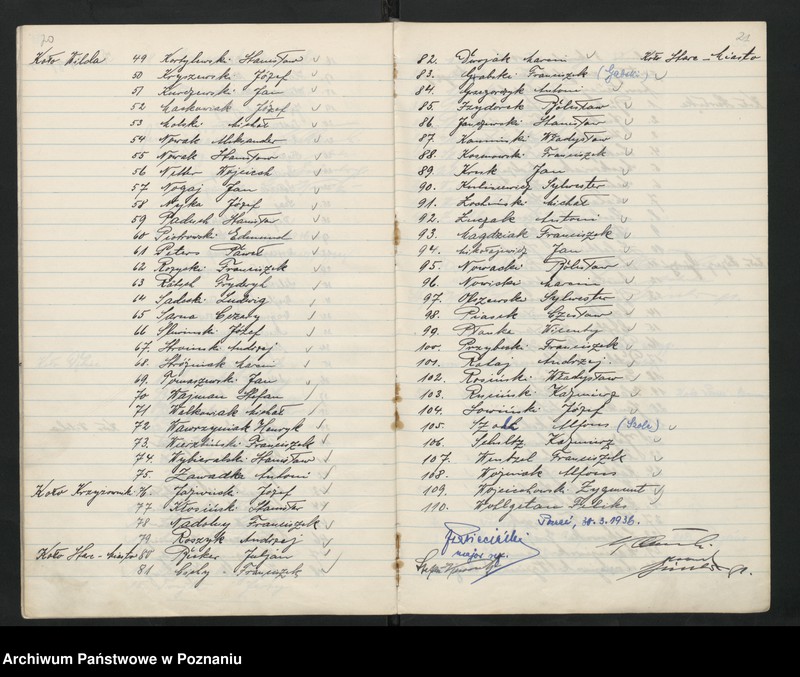 20
Koło Wilda 49 Kortylewski Stanisław
50 Kryszewski Józef
51 Kurczewski Jan
52 Laskowiak Józef
53 Molski Michał
54 Nowak Aleksander
55 Nowak Stanisław
56 Wojciech
57 Nogaj Jan
58 Nyka Józef
59 Paduch Stanisław
60 Piotrowski Edmund
61 Peters Paweł
62 Rozycki Franciszek
63 Fryderyk
64 Sadecki Ludwig
65 Sarna Cezary
66 Śliwiński Józef
67. Stroiński Andrzej
68. Stróżniak
69. Tomaszewski Jan
70 Wajman Stefan
71 Walkowiak Michał
72 Wawrzyniak Henryk
73. Wierzbiński Franciszek
74. Wybieralski Stanisław
75. Zawadka Antoni
Koło Krzyżownik 76. Józef
77 Kłosiński Stanisław
78 Nadolny Franciszek
79 Roszyk Andrzej
Koło Star-Miasto 80 Julian
81 Cichy - Franciszek
21
82. Dworjak Koło Stare-Miasto
83. Grabski Franciszek (Galski)
84. Grzegorczyk Antoni
85. Izydorek Bolesław
86. Janiszewski Stanisław
87. Kamiński Władysław
88. Franciszek
89. Kruk Jan
90. Sylwester
91. Michał
92. Łuczak Antoni
93. Magdziak Franciszek
94. Mikołajewicz Jan
95. Nowacki Bolesław
96. Nowicki
97. Olszewski Sylwester
98. Piasek Czesław
99. Planka Wincenty
100. Przybski Franciszek
101. Rataj Andrzej
102. Rosiński Władysław
103. Rusiński Kazimierz
104. Sowiński Józef
105. Alfons
106. Schultz Kazimierz
107. Wentzel Franciszek
108. Woźniak Alfons
109. Wojciechowski Zygmunt
110. Wohlgetan Feliks
30.3.1936.
major
Archiwum Państwowe w Poznaniu